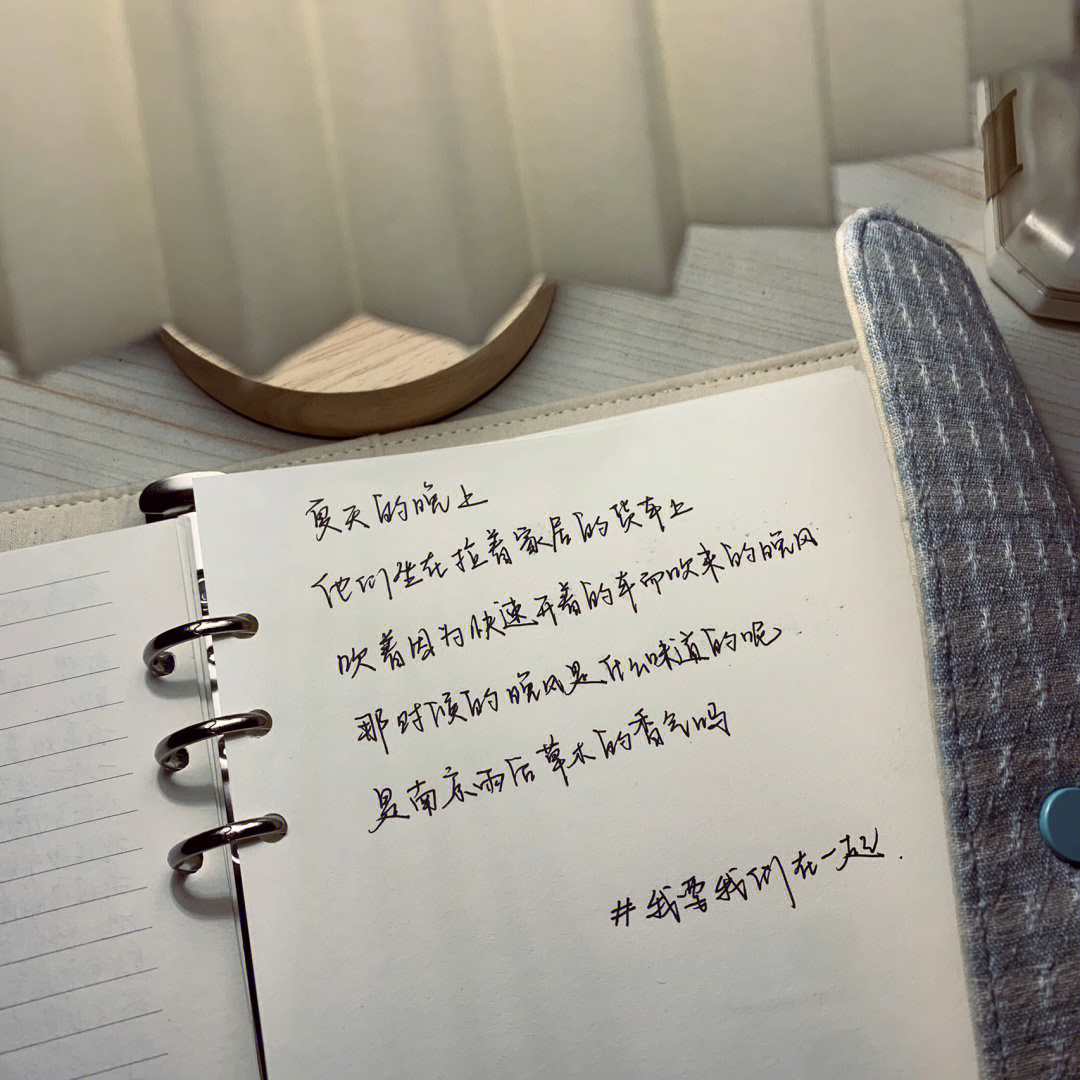 夏天的晚上
他们坐在拉着家居的货车上
吹着因为快速开着的车而吹来的晚风
那时候的晚风是什么味道的呢
是南京雨后草木的香气吗
#我要我们在一起.